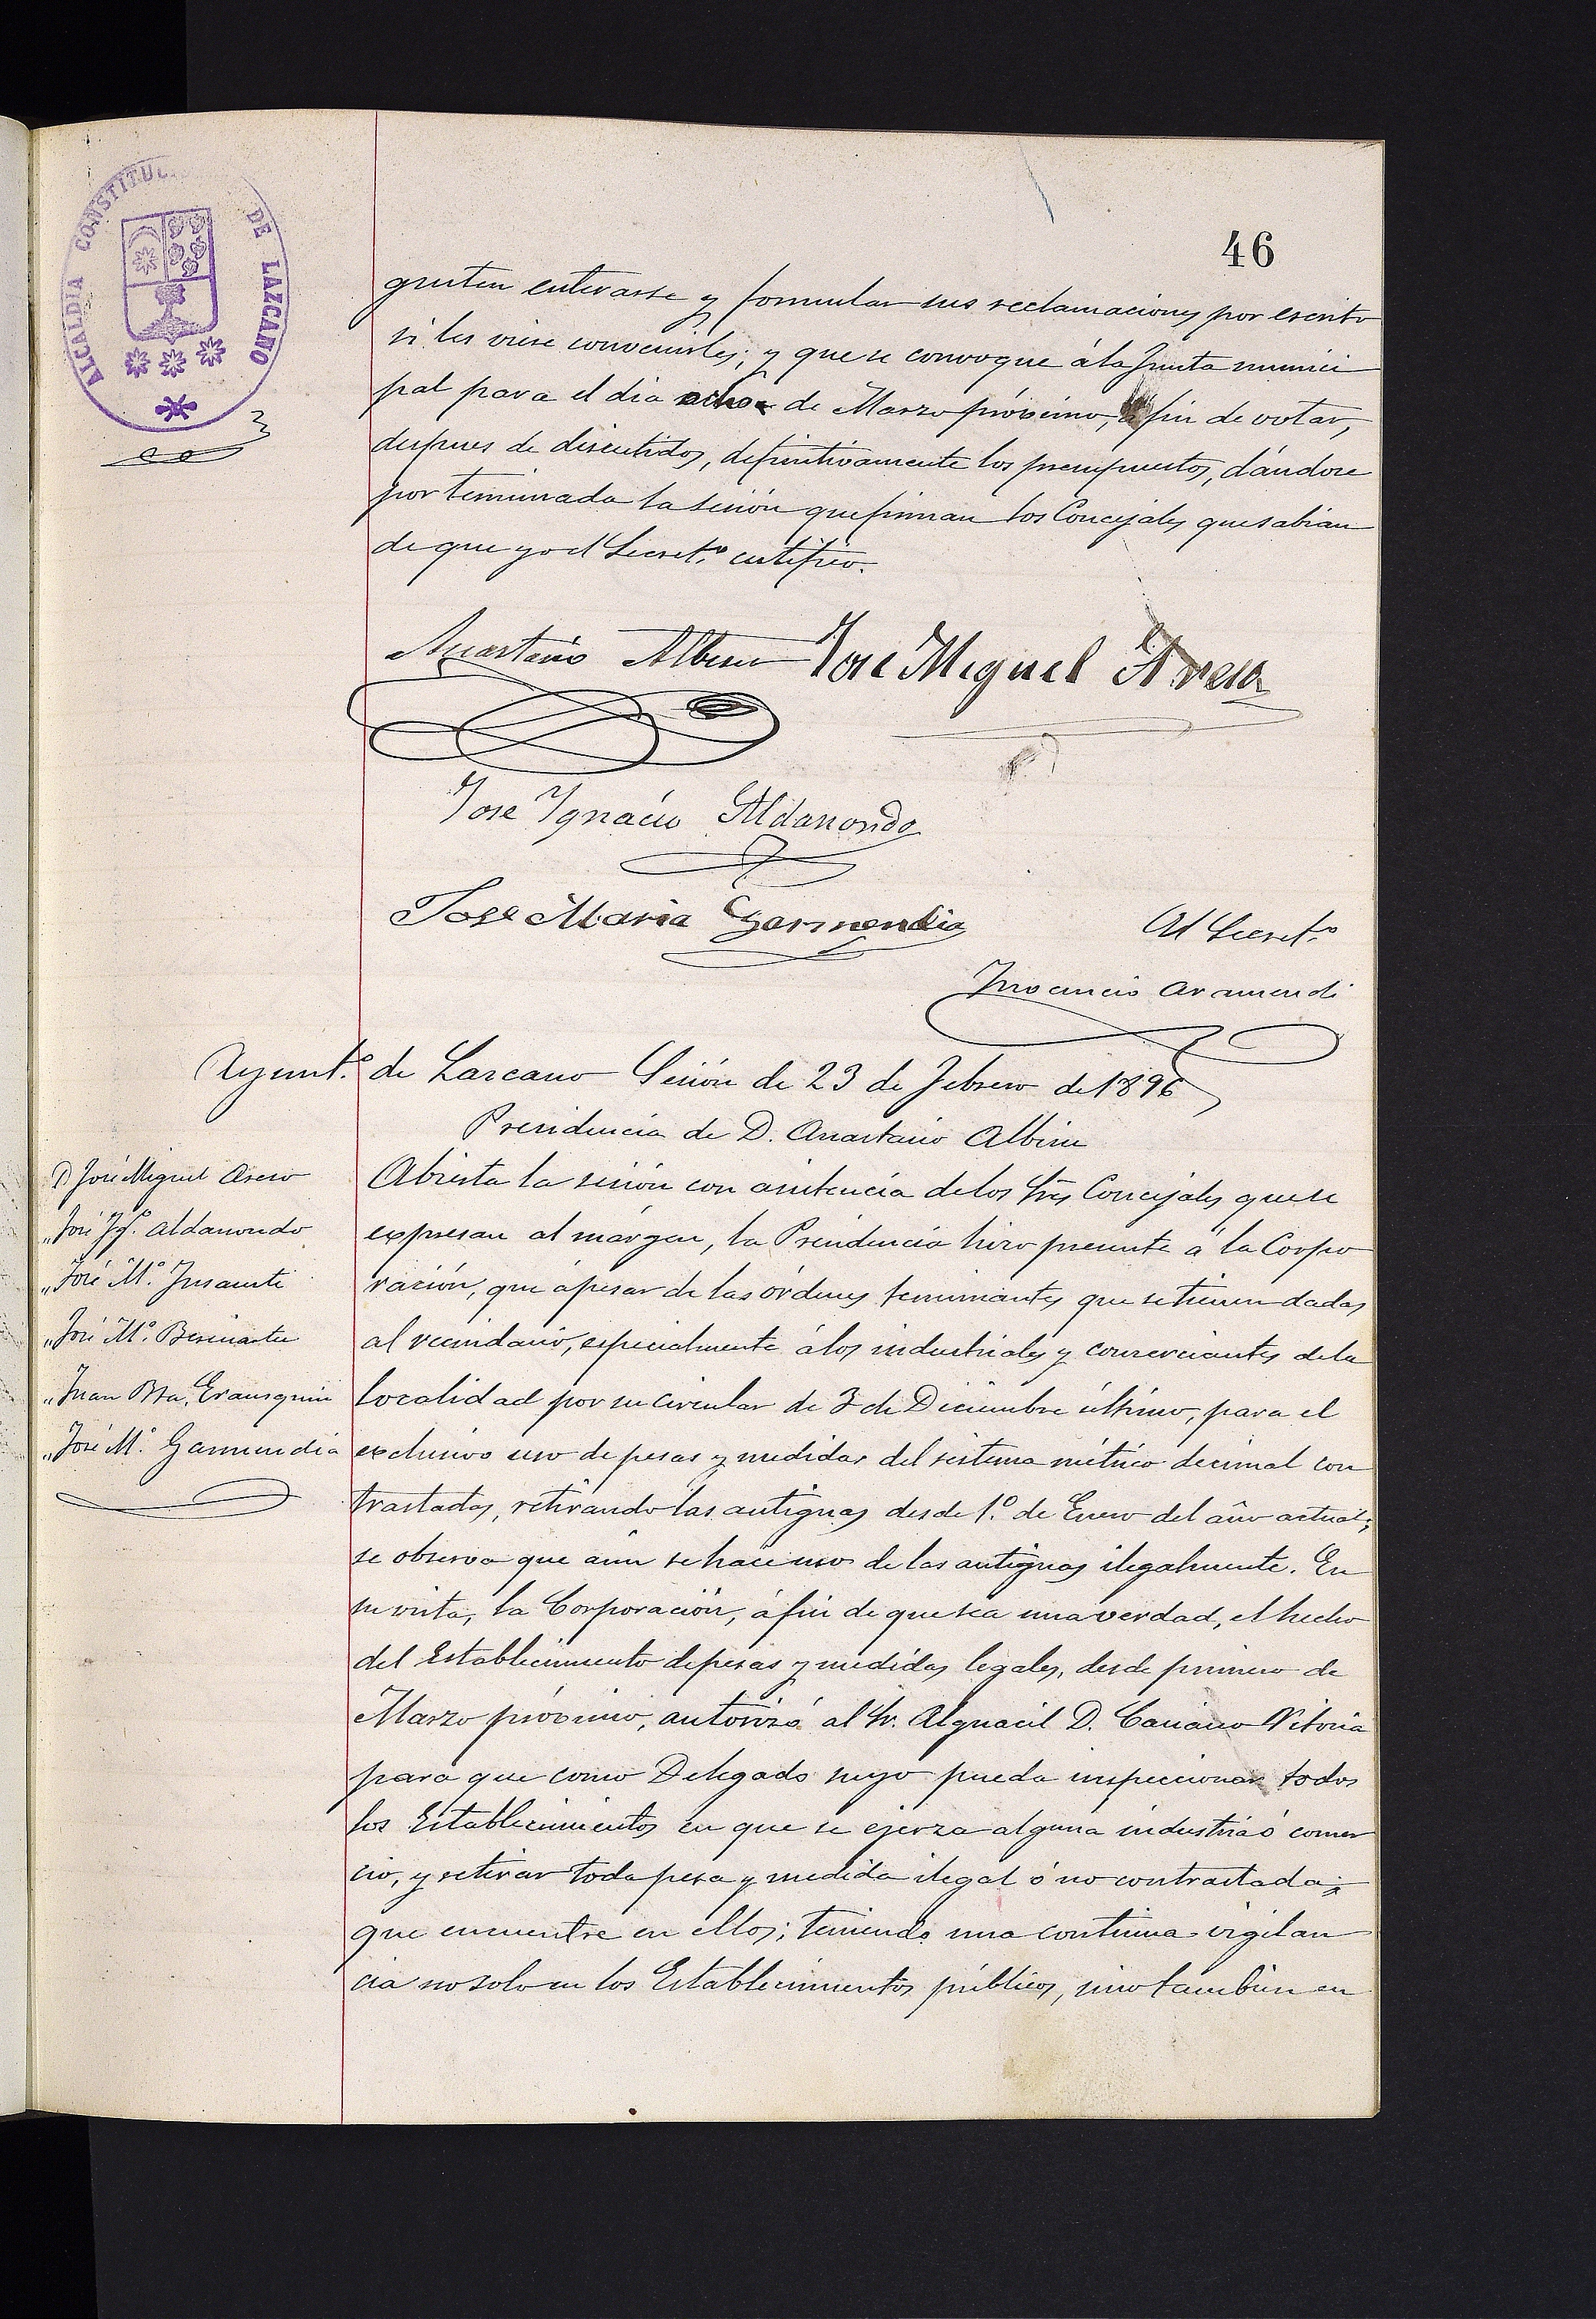 46
ALCALDIA CONSTITUC DE LAZCANO
gusten enterarse y formular sus reclamaciones por escrito
si les viese convenirles; y que se convoque á la Junta munici
pal para el dia ocho de Marzo próximo, á fin de votar,
despues de discutidos, definitivamente los presupuestos, dándose
por terminada la sesión que firman los Concejales que sabian
de que yo el Secret.º certifico.
Anastasio Albisu José Miguel Aseso
Jose Ygnacio Aldanondo
Jose Maria Garmendia
El Secret.º
Inocencio Aramendi
Ayunt.º de Lazcano Sesión de 23 de Febrero de 1896
Presidencia de D. Anastasio Albisu
D José Miguel Aseso
" José Ig.º Aldanondo
" José M.ª Insausti
" José M.ª
" Juan Bta. Erausquin
" José M.ª Garmendia
Abierta la sesión con asistencia de los Sres Concejales que se
expresan al márgen, la Presidencia hizo presente á la Corpo
ración, que ápesar de las órdenes terminantes que se tienen dadas
al vecindario, especialmente á los industriales y comerciantes de la
localidad por su circular de 3 de Diciembre último, para el
exclusivo uso de pesas y medidas del sistema métrico decimal con
trastadas, retirando las antiguas desde 1.º de Enero del año actual;
se observa que aún se hace uso de las antiguas ilegalmente. En
su vista, la Corporación, á fin de que sea una verdad, el hecho
del Establecimiento de pesas y medidas legales, desde primero de
Marzo próximo, autorizó al Sr. Alguacil D. Casiano Vitoria
para que como Delegado suyo pueda inspeccionar todos
los Establecimientos en que se ejerza alguna industria ó comer
cio, y retirar toda pesa y medida ilegal ó no contrastada;
que encuentre en ellos; teniendo una continua vigilan
cia no solo en los Establecimientos públicos, sino tambien en